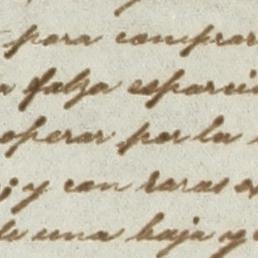 para comprar
a falza esparci
operar por la
; y con raras e
de una baja y